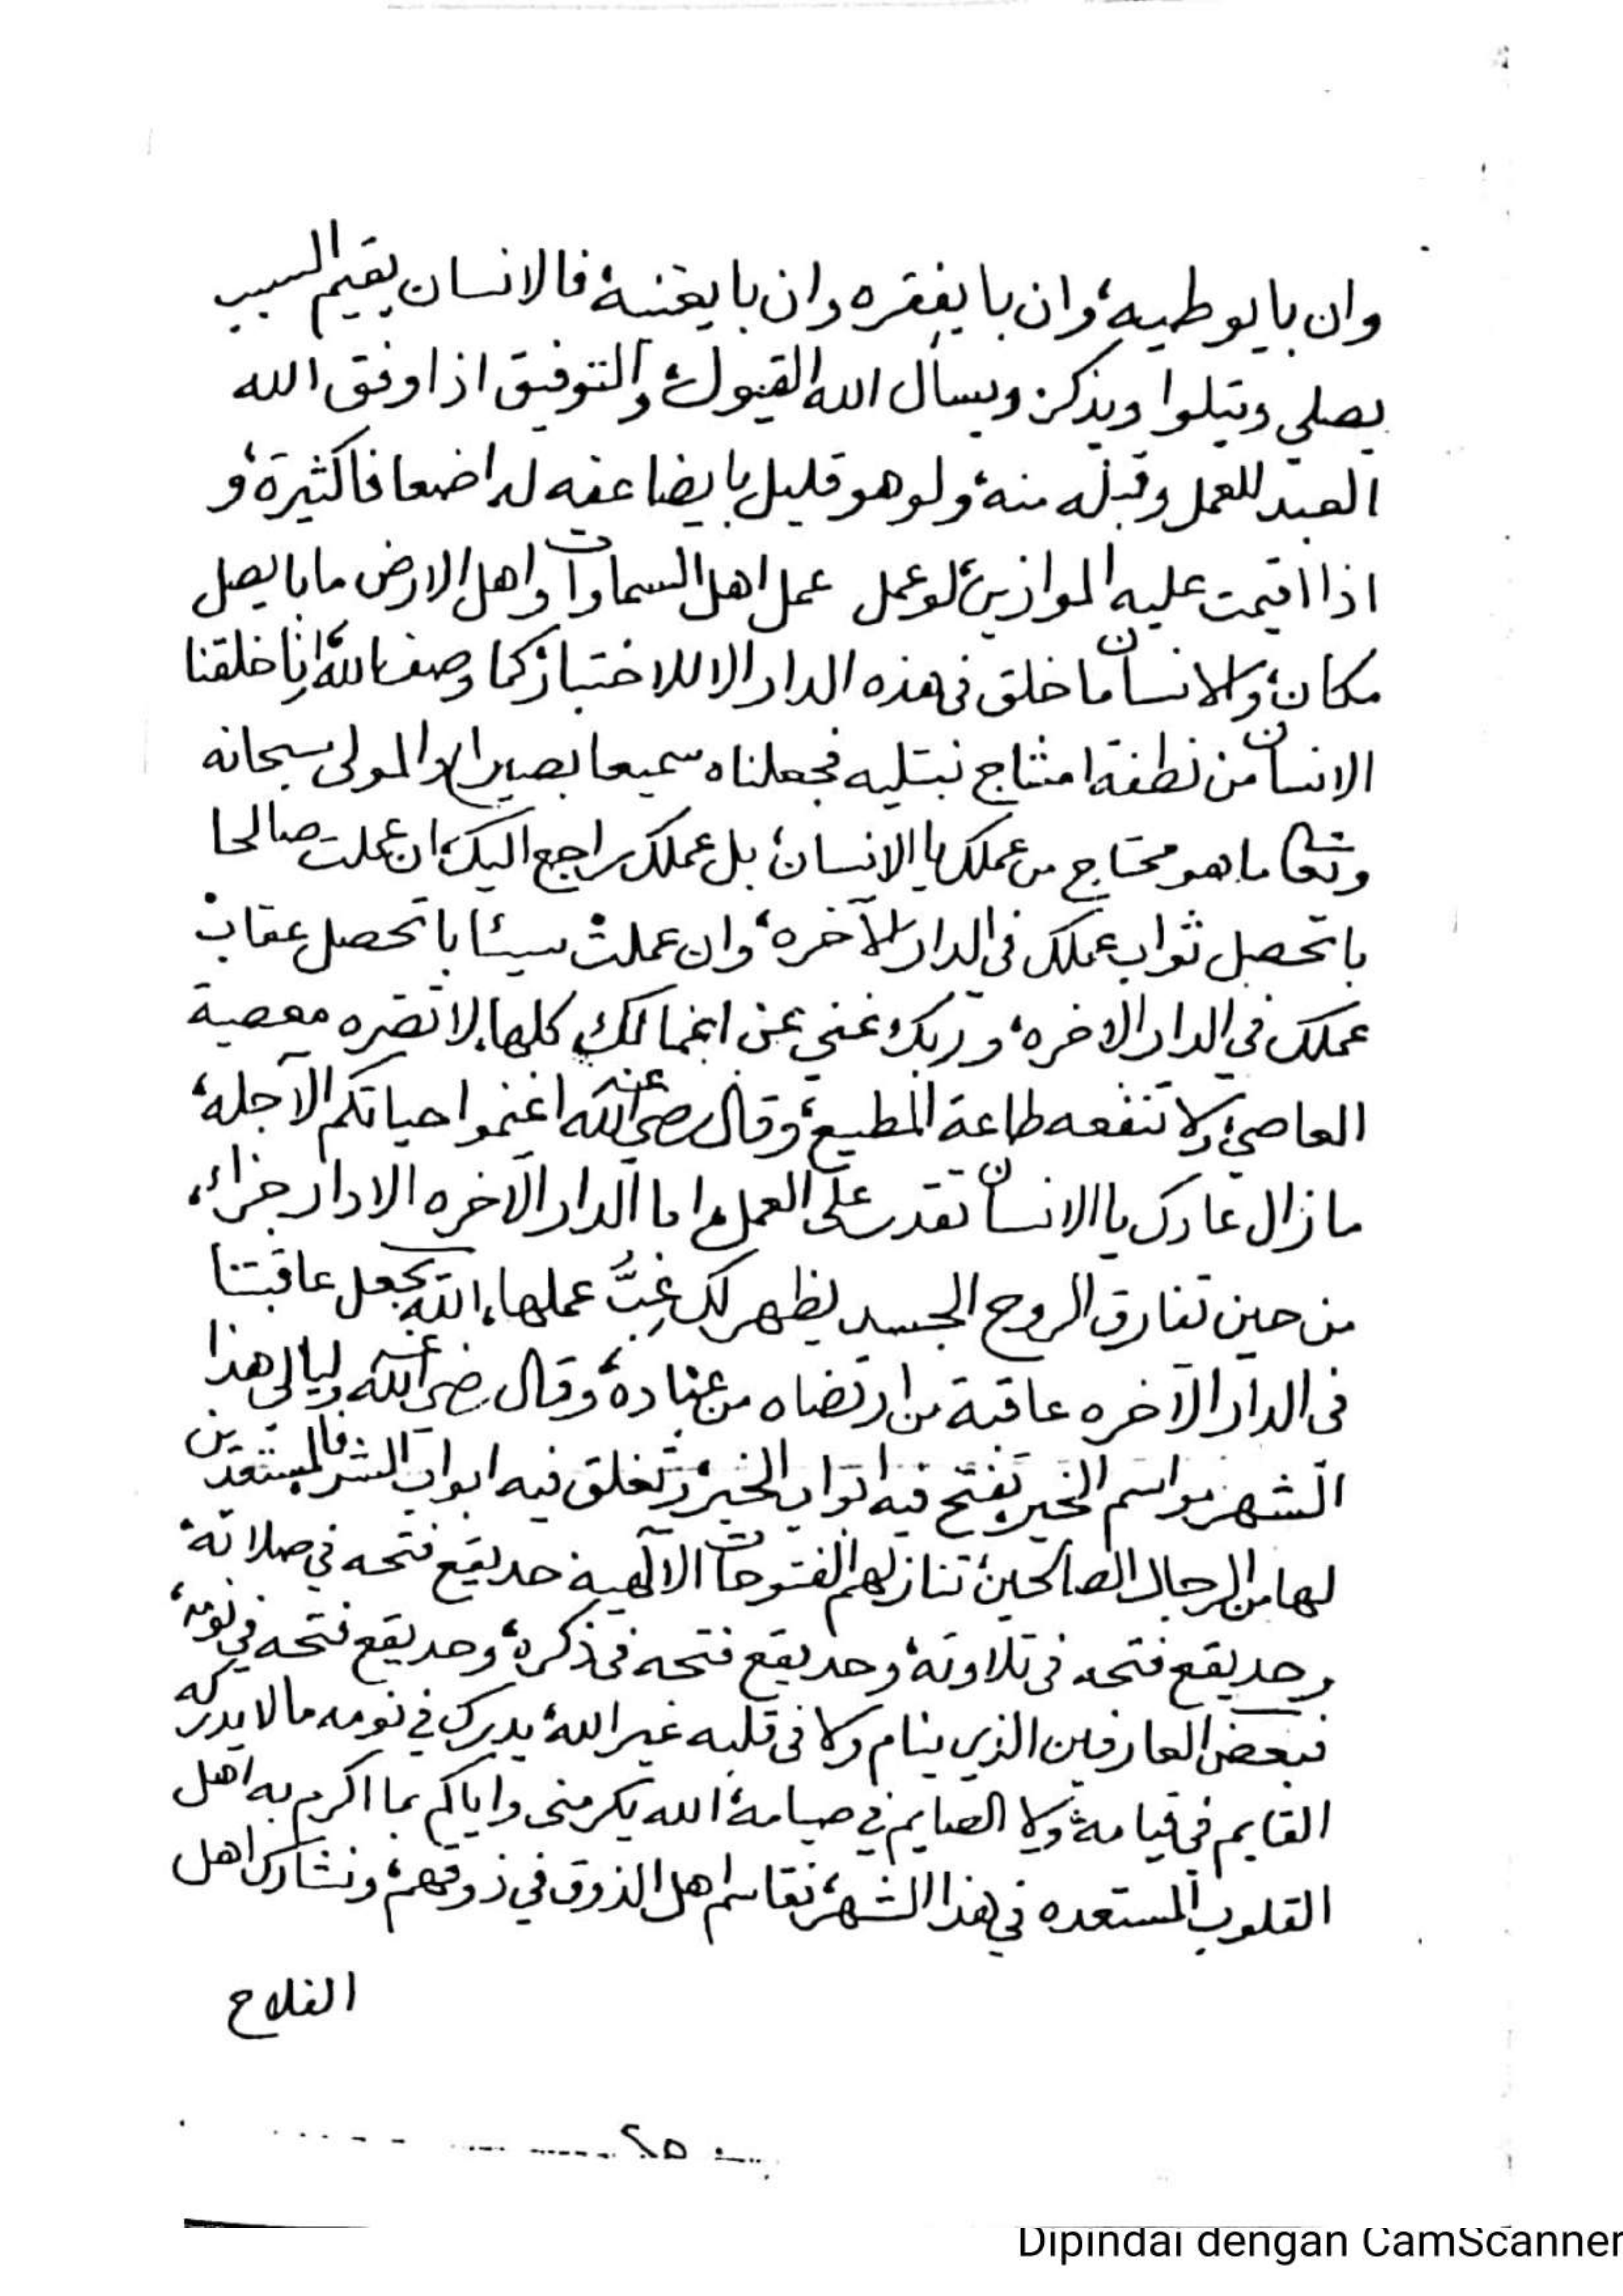 وان بايوطيه، وان بايفقره وان بايغنيه، فالانسان يقيم السبب
يصلي ويتلوا ويذكر ويسأل الله القبول، والتوفيق اذا وفق الله
العبد للعمل وقبله منه، ولو هو قليل بايضاعفه له اضعافا كثيرة، و
اذا اقيمت عليه الموازين، لو عمل عمل اهل السماوات واهل الارض ما بايصل
مكان، والانسان ما خلق في هذه الدار الا للاختبار، كما وصف الله، انا خلقنا
الانسان من نطفة امشاج نبتليه فجعلناه سميعا بصيرا، والمولى سبحانه
وتعالى ما هو محتاج من عملك يا الانسان، بل عملك راجع اليك، ان عملت صالحا
باتحصل ثواب عملك في الدار الآخره، وان عملت سيئا باتحصل عقاب
عملك في الدار الاخره، وربك غني عن اعمالك كلها، لا تضره معصية
العاصي، ولا تنفعه طاعة المطيع، وقال رضي الله عنه اغنموا حياتكم الآجله،
ما زال عادك يا الانسان تقدر على العمل، اما الدار الآخره الا دار جزاء،
من حين تفارق الروح الجسد يظهر لك غِبُّ عملها، الله يجعل عاقبتنا
في الدار الآخره عاقبة من ارتضاه من عباده، وقال رضي الله عنه وليالي هذا
الشهر مواسم الخير، تفتح فيه ابواب الخير، وتغلق فيه ابواب الشر فالمستعدين
لها من الرجال الصالحين، تنازلهم الفتوحات الالهية حد يقع فتحه في صلاته،
وحد يقع فتحه في تلاوته، وحد يقع فتحه في ذكره، وحد يقع فتحه في نومه،
فبعض العارفين الذي ينام ولا في قلبه غير الله، يدرك في نومه ما لا يدركه
القايم في قيامه، ولا الصايم في صيامه، الله يكرمني واياكم بما اكرم به اهل
القلوب المستعده في هذا الشهر، نقاسم اهل الذوق في ذوقهم، ونشارك اهل
الفلاح
٢٥
Dipindai dengan CamScanner